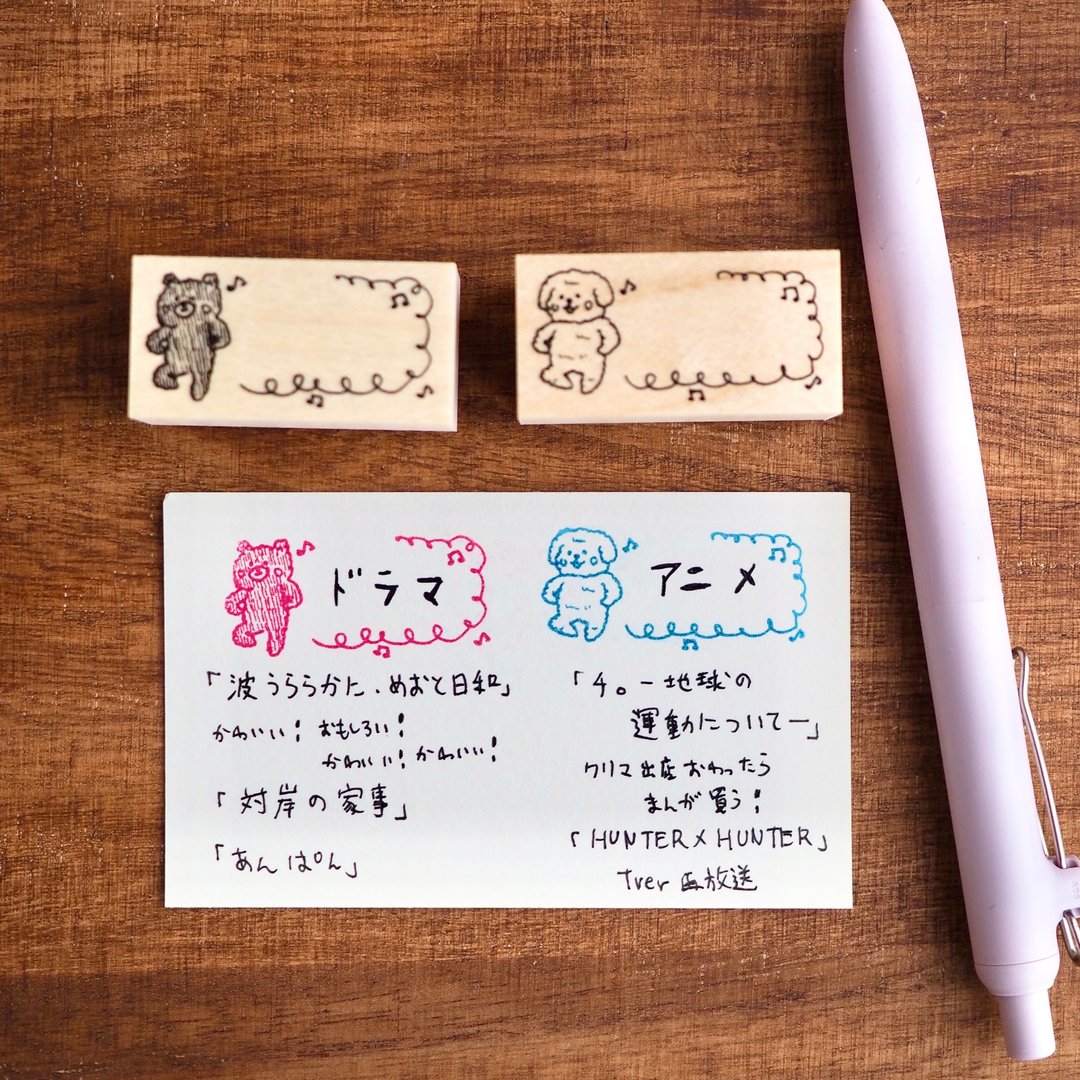 ドラマ
「波うららかに、めおと日和」
かわいい！おもしろい！
かわいい！かわいい！
「対岸の家事」
「あんぱん」
アニメ
「チ。ー地球の
運動についてー」
クリマ出店おわったら
まんが買う！
「HUNTER×HUNTER」
Tver 再放送